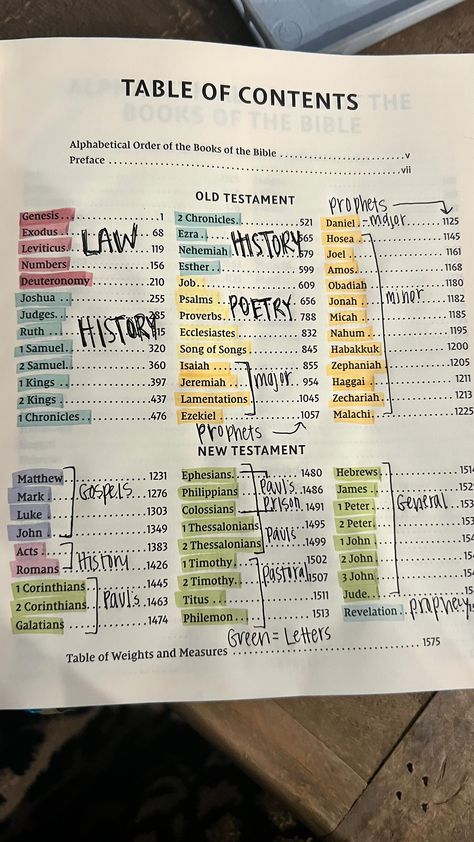 TABLE OF CONTENTS
Alphabetical Order of the Books of the Bible ..... v
Preface ..... vii
OLD TESTAMENT
Genesis ..... 1
Exodus ..... 68
Leviticus ..... 119
Numbers ..... 156
Deuteronomy ..... 210
LAW
Joshua ..... 255
Judges
Ruth
1 Samuel ..... 320
2 Samuel ..... 360
1 Kings ..... 397
2 Kings ..... 437
1 Chronicles ..... 476
HISTORY
2 Chronicles ..... 521
Ezra ..... 565
Nehemiah ..... 579
Esther ..... 599
HISTORY
Job ..... 609
Psalms ..... 656
Proverbs ..... 788
Ecclesiastes ..... 832
Song of Songs ..... 845
POETRY
Isaiah ..... 855
Jeremiah ..... 954
Lamentations ..... 1045
Ezekiel ..... 1057
major
prophets →
prophets
Daniel - major ..... 1125
Hosea ..... 1145
Joel ..... 1161
Amos ..... 1168
Obadiah ..... 1180
Jonah ..... 1182
Micah ..... 1185
Nahum ..... 1195
Habakkuk ..... 1200
Zephaniah ..... 1205
Haggai ..... 1211
Zechariah ..... 1213
Malachi ..... 1225
minor
NEW TESTAMENT
Matthew ..... 1231
Mark ..... 1276
Luke ..... 1303
John ..... 1349
Gospels
Acts ..... 1383
Romans ..... 1426
History
1 Corinthians ..... 1445
2 Corinthians ..... 1463
Galatians ..... 1474
Paul's
Ephesians ..... 1480
Philippians ..... 1486
Colossians ..... 1491
Paul's
prison
1 Thessalonians ..... 1495
2 Thessalonians ..... 1499
Pauls
1 Timothy ..... 1502
2 Timothy ..... 1507
Titus ..... 1511
Philemon ..... 1513
Pastoral
Hebrews
James
1 Peter
2 Peter
1 John
2 John
3 John
Jude
General
Revelation
prophecy
Green = Letters
Table of Weights and Measures ..... 1575